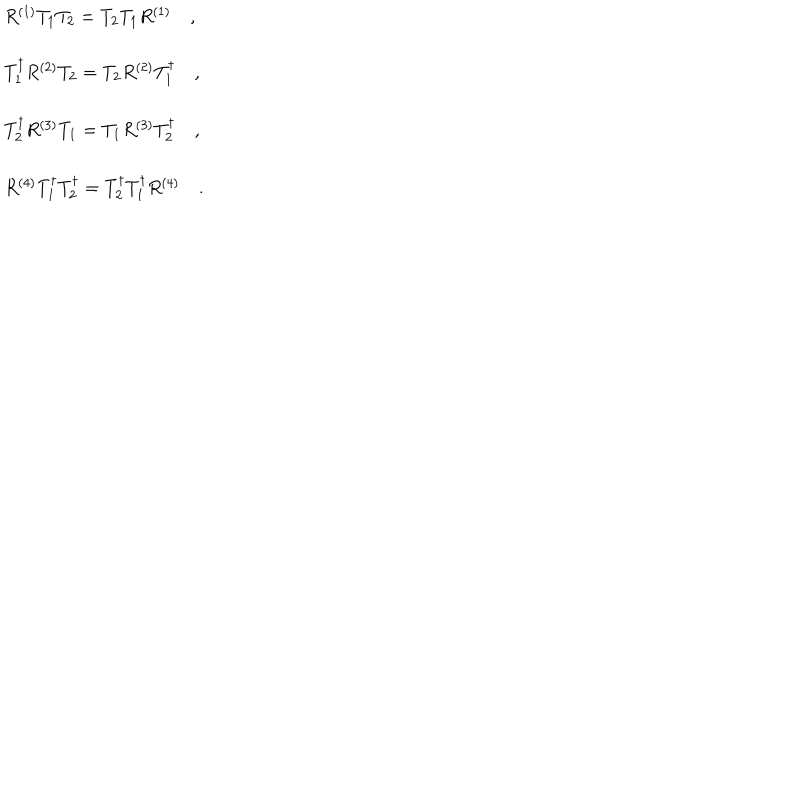 R^{(1)}T_1T_2 = T_2T_1R^{(1)} ,
T_1^†R^{(2)}T_2 = T_2R^{(2)}T_1^† ,
T_2^†R^{(3)}T_1 = T_1R^{(3)}T_2^† ,
R^{(4)}T_1^†T_2^† = T_2^†T_1^†R^{(4)} .